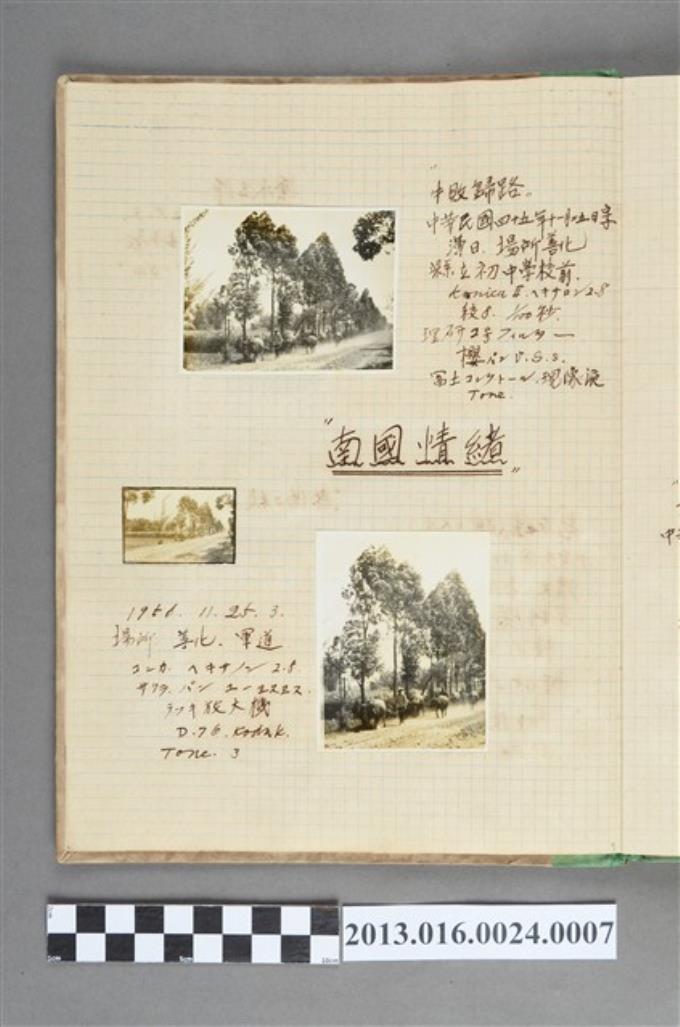 "中畋歸路。
中華民國四十五年十一月廿五日家
薄日、場所善化
縣立初中學校前.
Konica II. ヘキサノン 2.8
絞8. 1/100秒.
理研 フィルター
櫻パン U.S.S.
冨士コレクトール、現像液
Tone.
"南國情緒"
1956. 11. 25. 3.
場所 善化、軍道
コニカ. ヘキサノン 2.8
サクラ. パン ユーエスエス.
ラッキ放大機
D.76. Kodak.
Tone. 3
2013.016.0024.0007